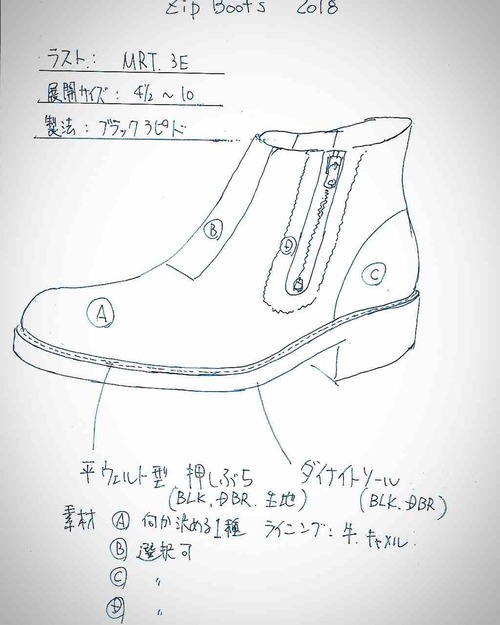 Zip Boots 2018
ラスト: MRT. 3E
展開サイズ: 4½ ~ 10
製法: ブラックラピド
B
D
C
A
平ウェルト型 押しぶち ダイナイトソール
(BLK. DBR. 生地) (BLK. DBR)
素材 A 何か決める1種 ライニング: 牛. キャメル.
B 選択可
C 〃
D 〃